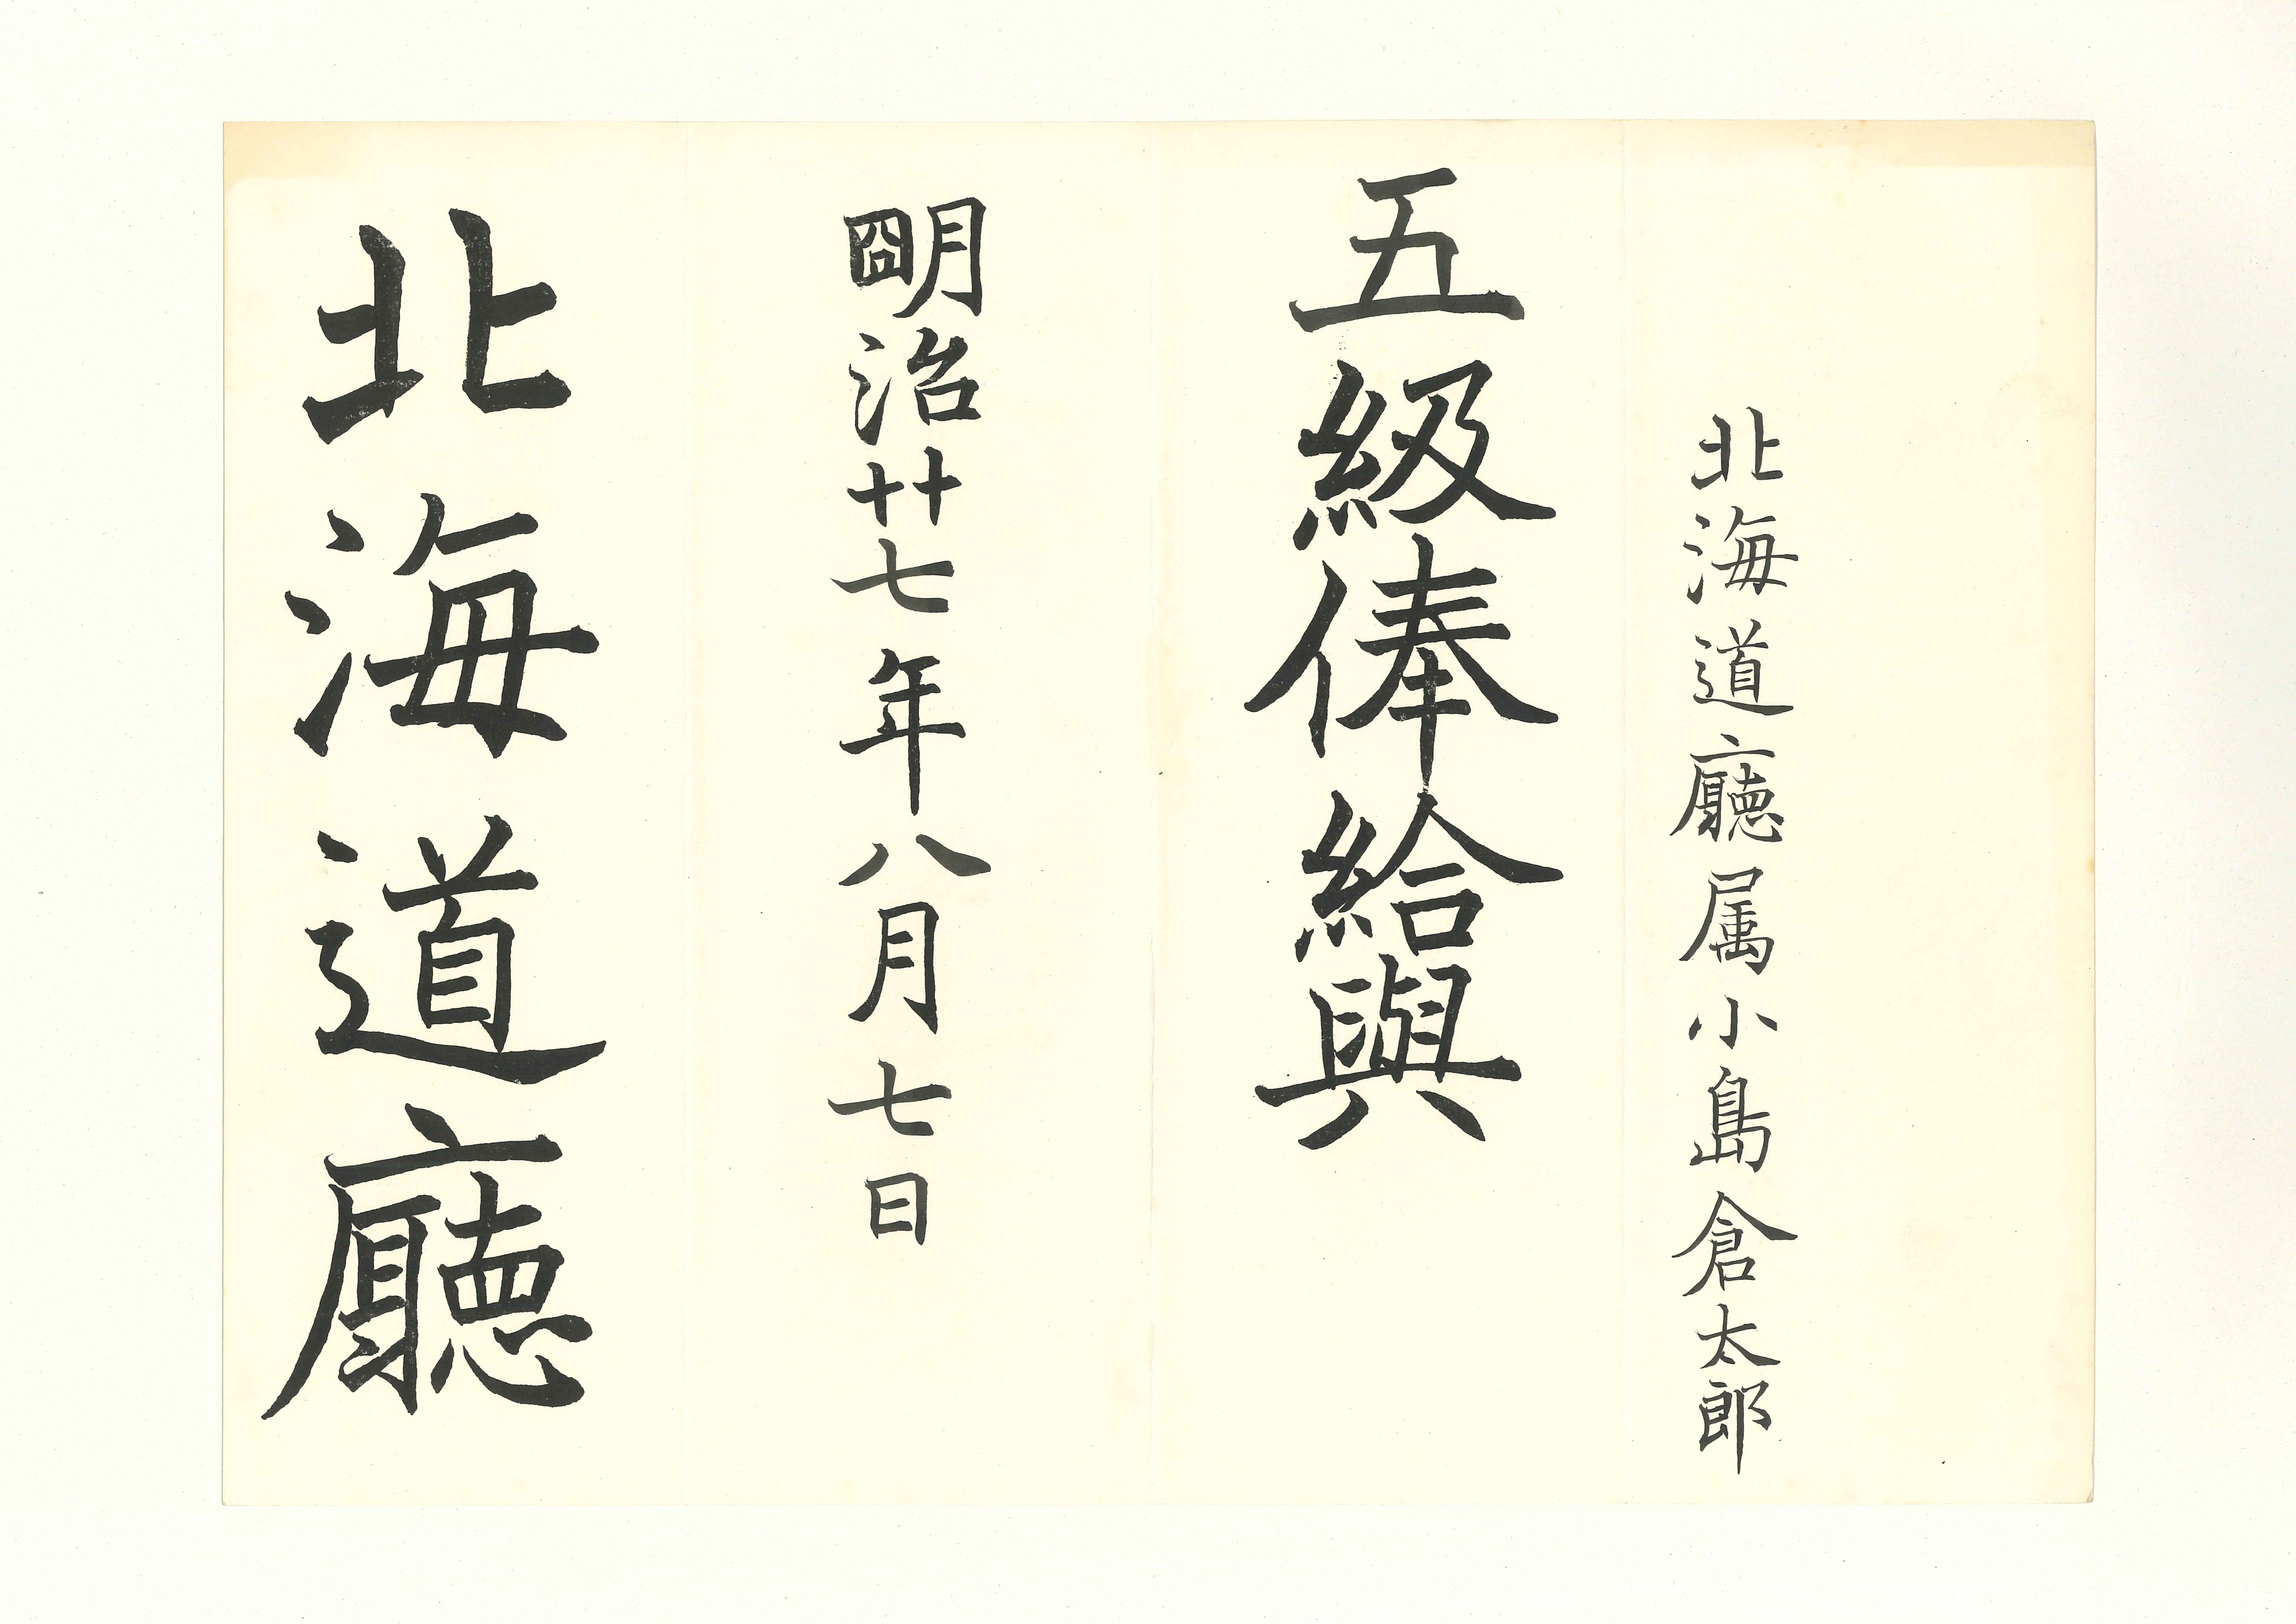 北海道廳属小島倉太郎
五級俸給與
朙治廿七年八月七日
北海道廳